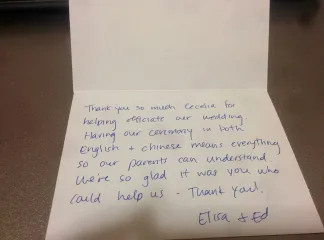 Thank you so much Cecelia for
helping officiate our wedding
Having our ceremony in both
English + chinese means everything
so our parents can understand
We're so glad it was you who
could help us - Thank you!,
Elisa & Ed